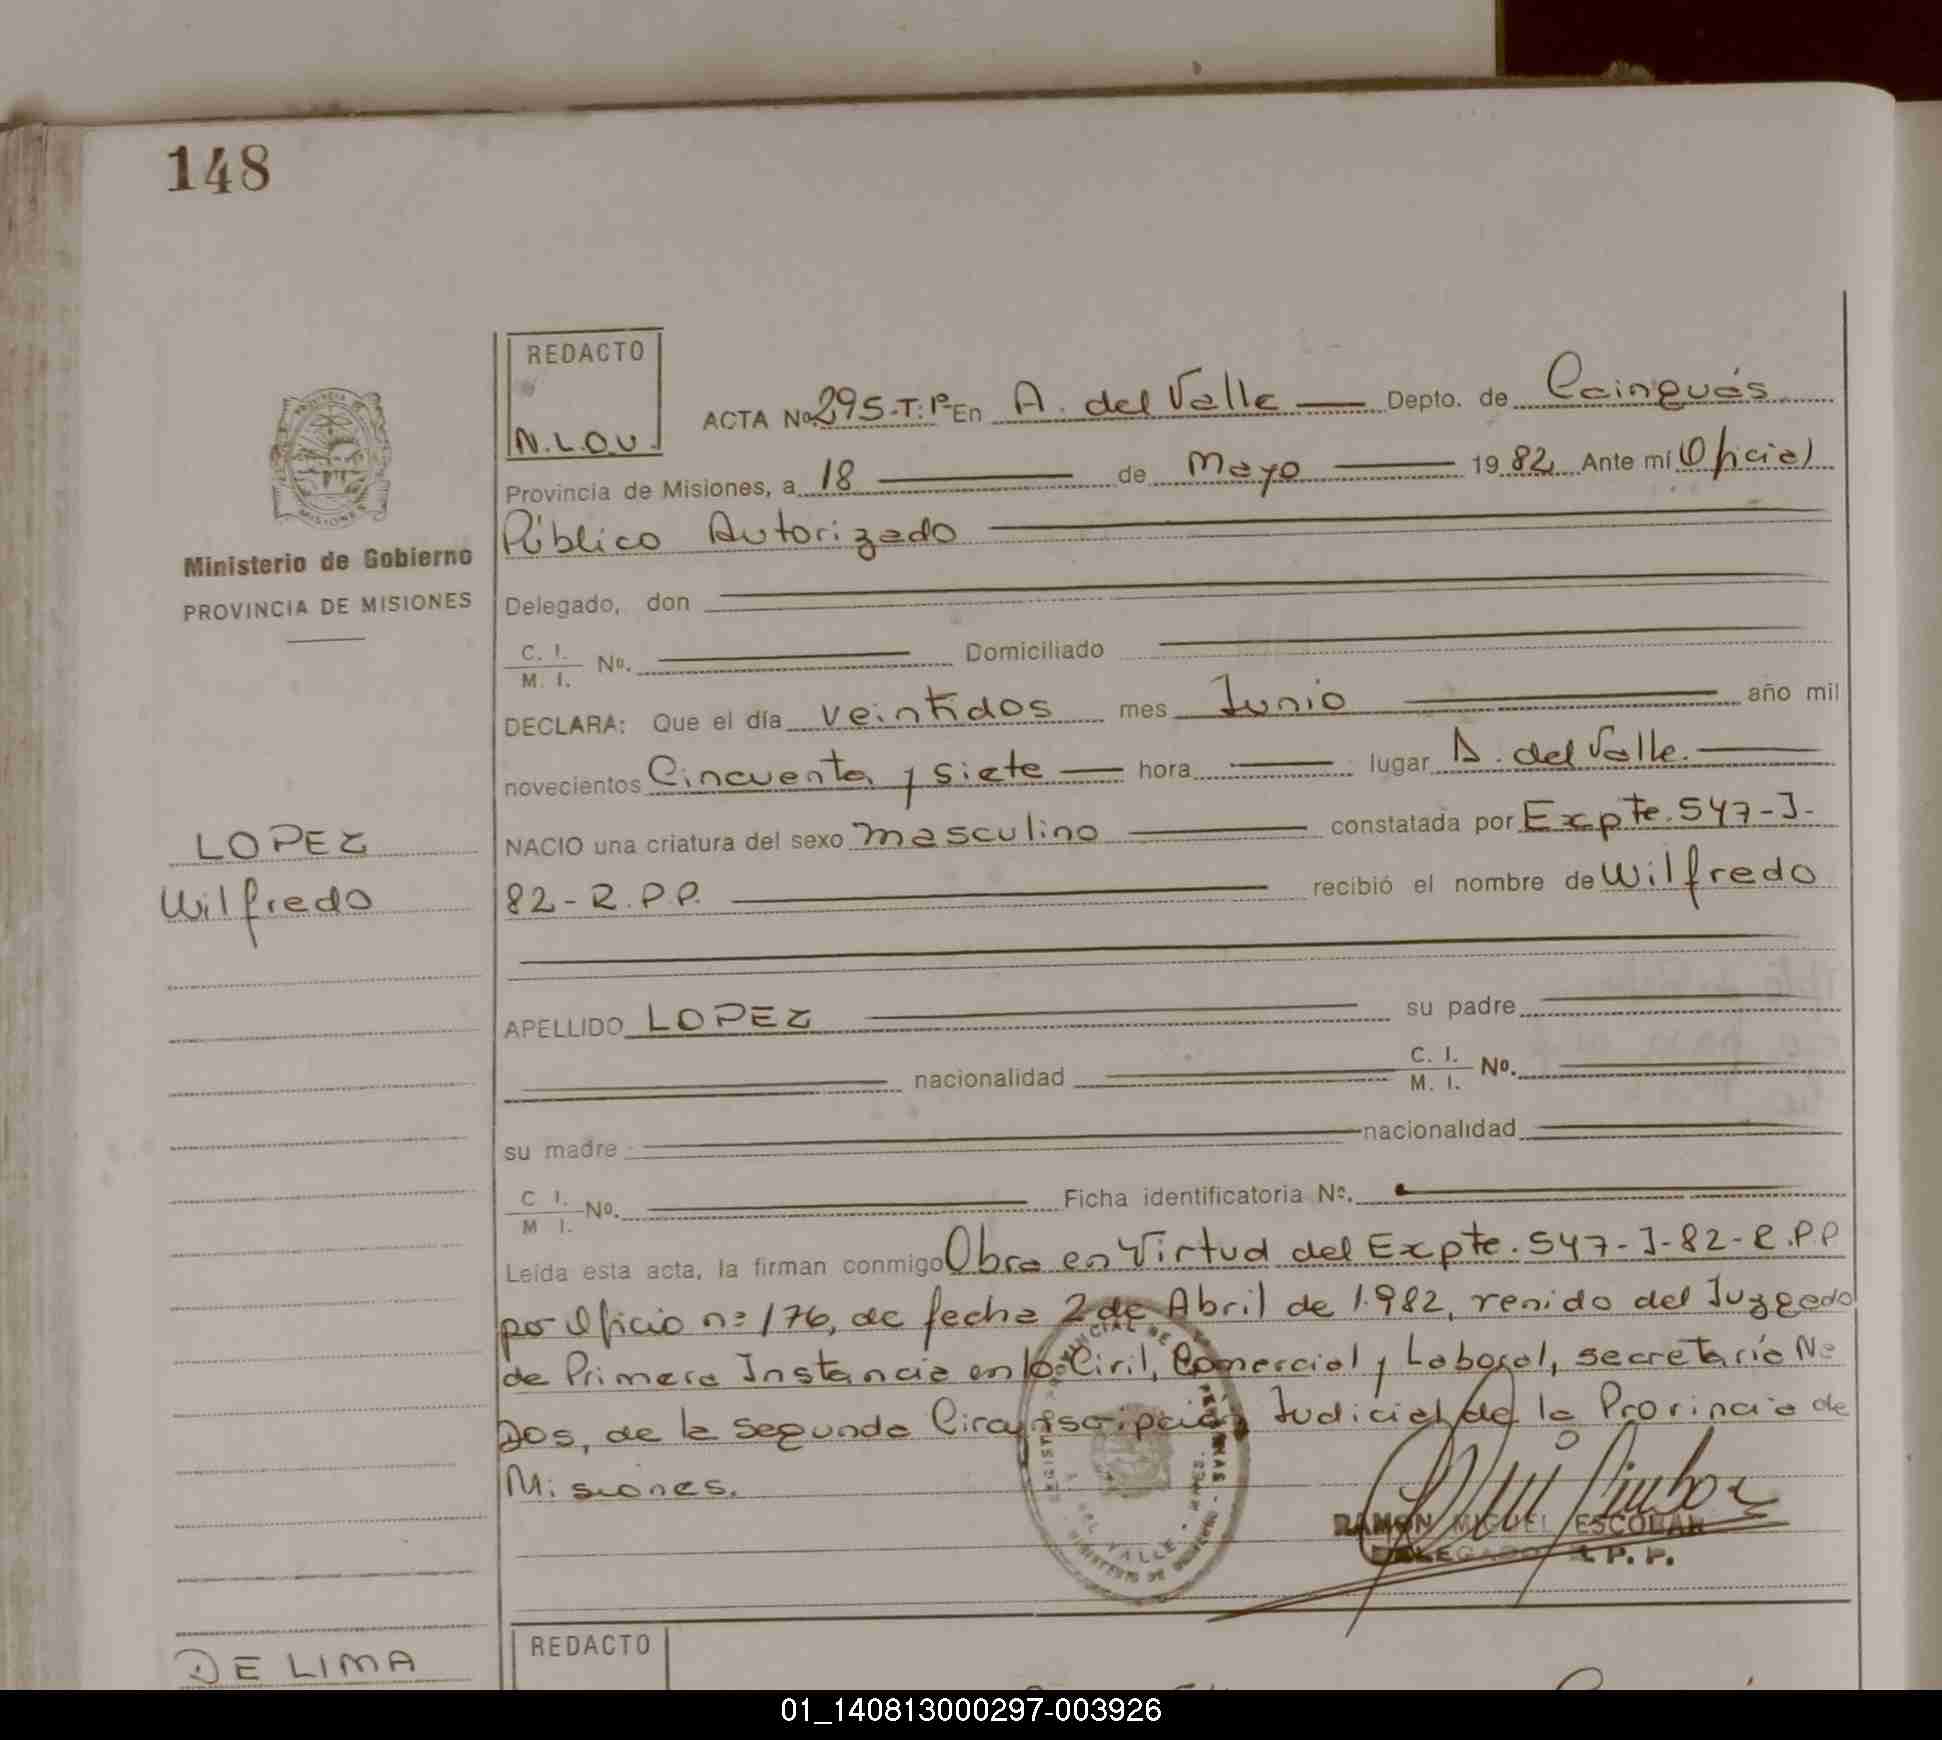 148
REDACTO
N.L.O.V.
ACTA Nº 295-T:P- En A. del Valle Depto. de Cainguás
Provincia de Misiones, a 18 de Mayo 1982 Ante mí Oficial
Público Autorizado
Ministerio de Gobierno
PROVINCIA DE MISIONES
Delegado, don
C. I. / M. I. Nº. Domiciliado
DECLARA: Que el día veintidos mes Junio año mil
novecientos Cincuenta y siete hora lugar A. del Valle.
LOPEZ
Wilfredo
NACIO una criatura del sexo masculino constatada por Expte. 547-J-
82-R.P.P. recibió el nombre de Wilfredo
APELLIDO LOPEZ su padre
nacionalidad C. I. / M. I. Nº.
su madre nacionalidad
C. I. / M. I. Nº. Ficha identificatoria Nº.
Leída esta acta, la firman conmigo Obra en Virtud del Expte. 547-J-82-R.P.P
por Oficio nº 176, de fecha 2 de Abril de 1.982, venido del Juzgado
de Primera Instancia en lo Civil, Comercial y Laboral, secretaría Nº
Dos, de la segunda Circunscripción Judicial de la Provincia de
Misiones.
RAMON MIGUEL ESCOBAR
DELEGADO R. P. P.
DE LIMA
REDACTO
01_140813000297-003926